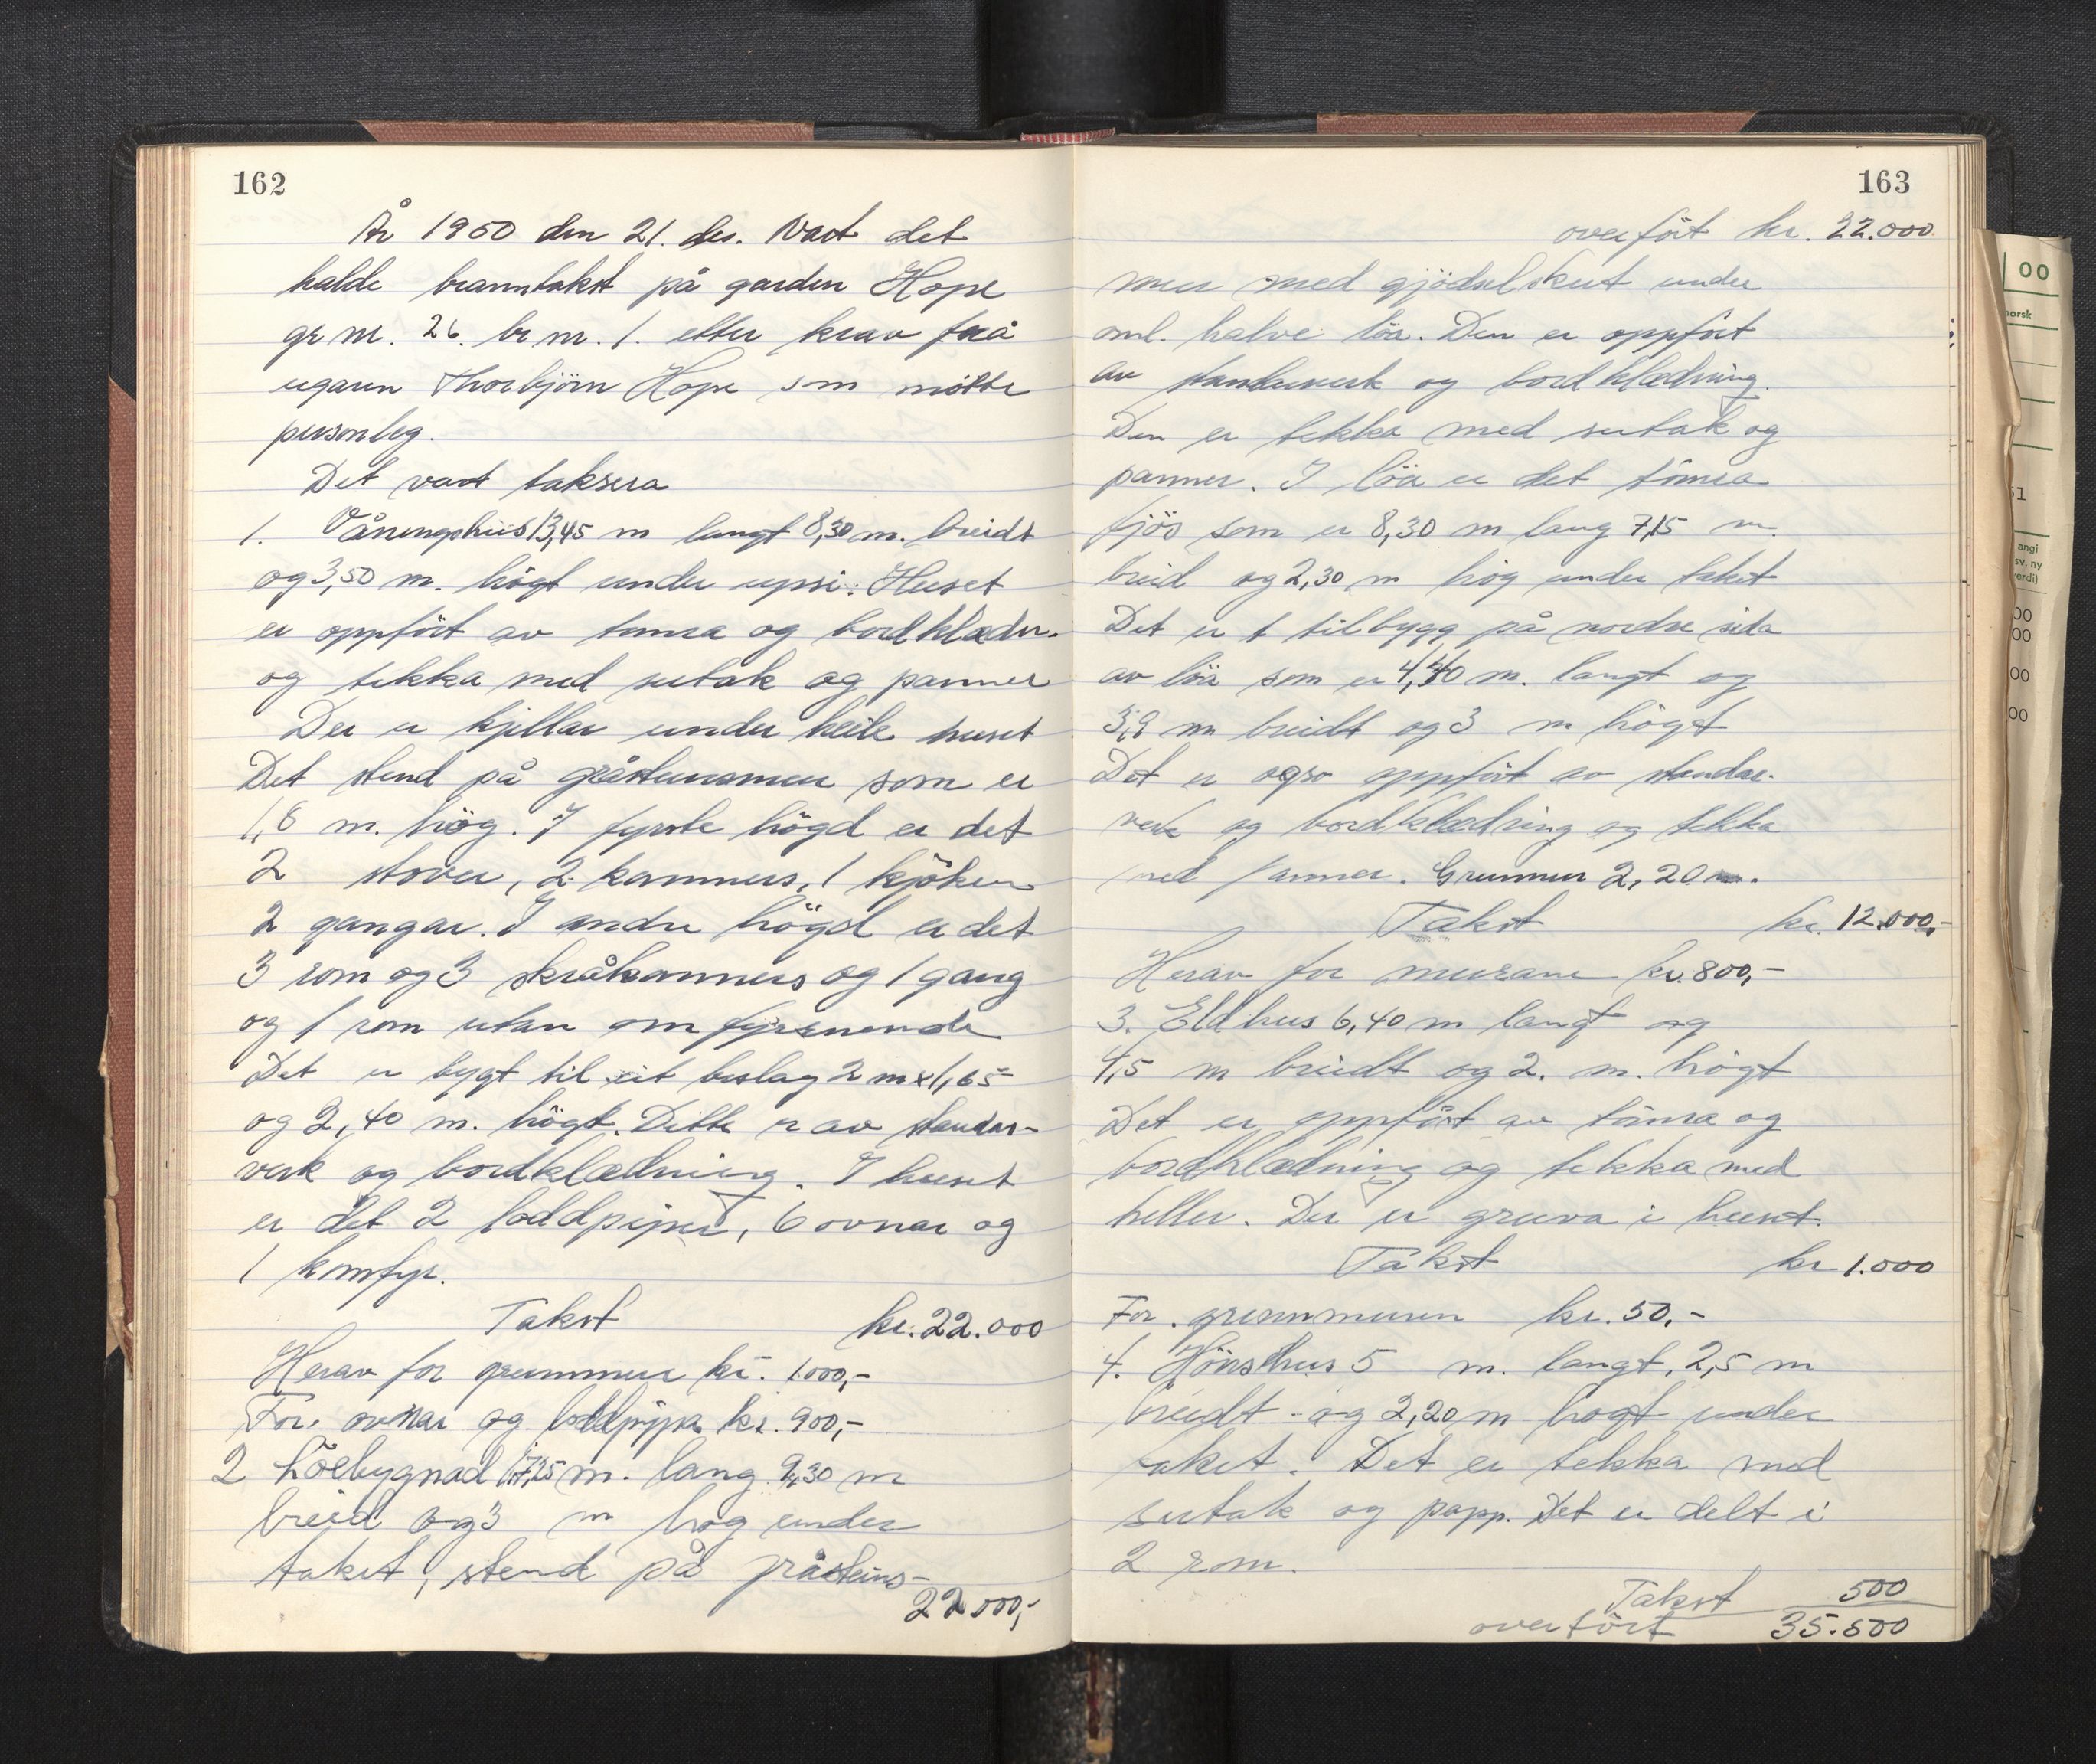 162
År 1950 den 21. des. Vart det
halde branntakst på garden Hope
gr nr. 26. br nr. 1. etter krav frå
eigaren Thorbjörn Hope som mötte
personleg.
Det vart taksera
1. Våningshus 13,45 m langt 8,30 m. breidt
og 3,50 m. högt under upsi. Huset
er oppfört av tömra og bordklædn.
og tekka med sutak og panner
Der er kjellar under heile huset
Det stend på gråsteinsmur som er
1,8 m. høg. I fyrste högd er det
2 stover, 2 kammers, 1 kjöken
2 gangar. I andre högd er det
3 rom og 3 skråkammers og 1 gang
og 1 rom utan om fyrenemde
Det er bygt til eit beslag 2 m x 1,65
og 2,40 m. högt. Dette er av standar-
verk og bordklædning. I huset
er det 2 loddpiper, 6 ovnar og
1 komfyr.
Takst kr. 22.000
Herav for grunnmur kr. 1000,-
For ovnar og loddpipa kr. 900,-
2 Löebygnad 17,25 m. lang 9,30 m
breid og 3 m høg under
taket, stend på gråsteins-
22000,-
163
overfört kr. 22.000
mur med gjödselskut under
oml. halve löa. Den er oppfört
av standarverk og bordklædning.
Den er tekka med sutak og
panner. I löa er det tömra
fjös som er 8,30 m lang 7,15 m.
breid og 2,30 m høg under taket
Det er 1 tilbygg på nordre sida
av löa som er 4,40 m. langt og
3,9 m breidt og 3 m högt
Det er ogso oppfört av standar-
verk og bordklædning og tekka
med panner. Grunnmur 2,20 m.
Takst kr. 12.000,-
Herav for murane kr. 800,-
3. Eldhus 6,40 m langt og
4,5 m breidt og 2. m. högt
Det er oppfört av tömra og
bordklædning og tekka med
heller. Der er gruva i huset.
Takst kr 1.000
For. grunnmuren kr. 50,-
4. Hönsehus 5 m. langt, 2,5 m
breidt - og 2,20 m högt under
taket. Det er tekka med
sutak og papp. Det er delt i
2 rom.
Takst 500
overfört 35.500
00
norsk
51
angi
sv. ny
verdi)
00
00
00
00